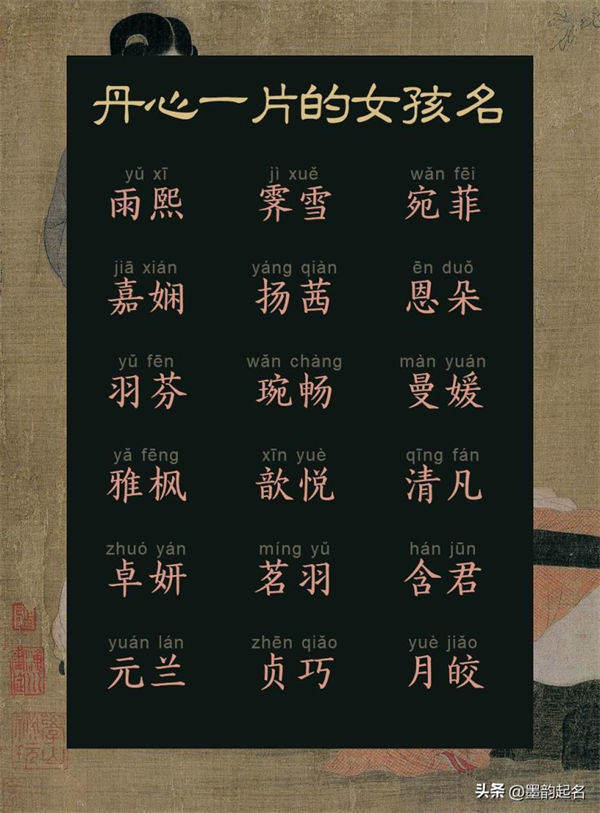 丹心一片的女孩名
yǔ xī jì xuě wǎn fēi
雨熙 霁雪 宛菲
jiā xián yáng qiàn ēn duǒ
嘉娴 扬茜 恩朵
yǔ fēn wǎn chàng màn yuán
羽芬 琬畅 曼媛
yǎ fēng xīn yuè qīng fán
雅枫 歆悦 清凡
zhuó yán míng yǔ hán jūn
卓妍 茗羽 含君
yuán lán zhēn qiǎo yuè jiǎo
元兰 贞巧 月皎
头条 @墨韵起名